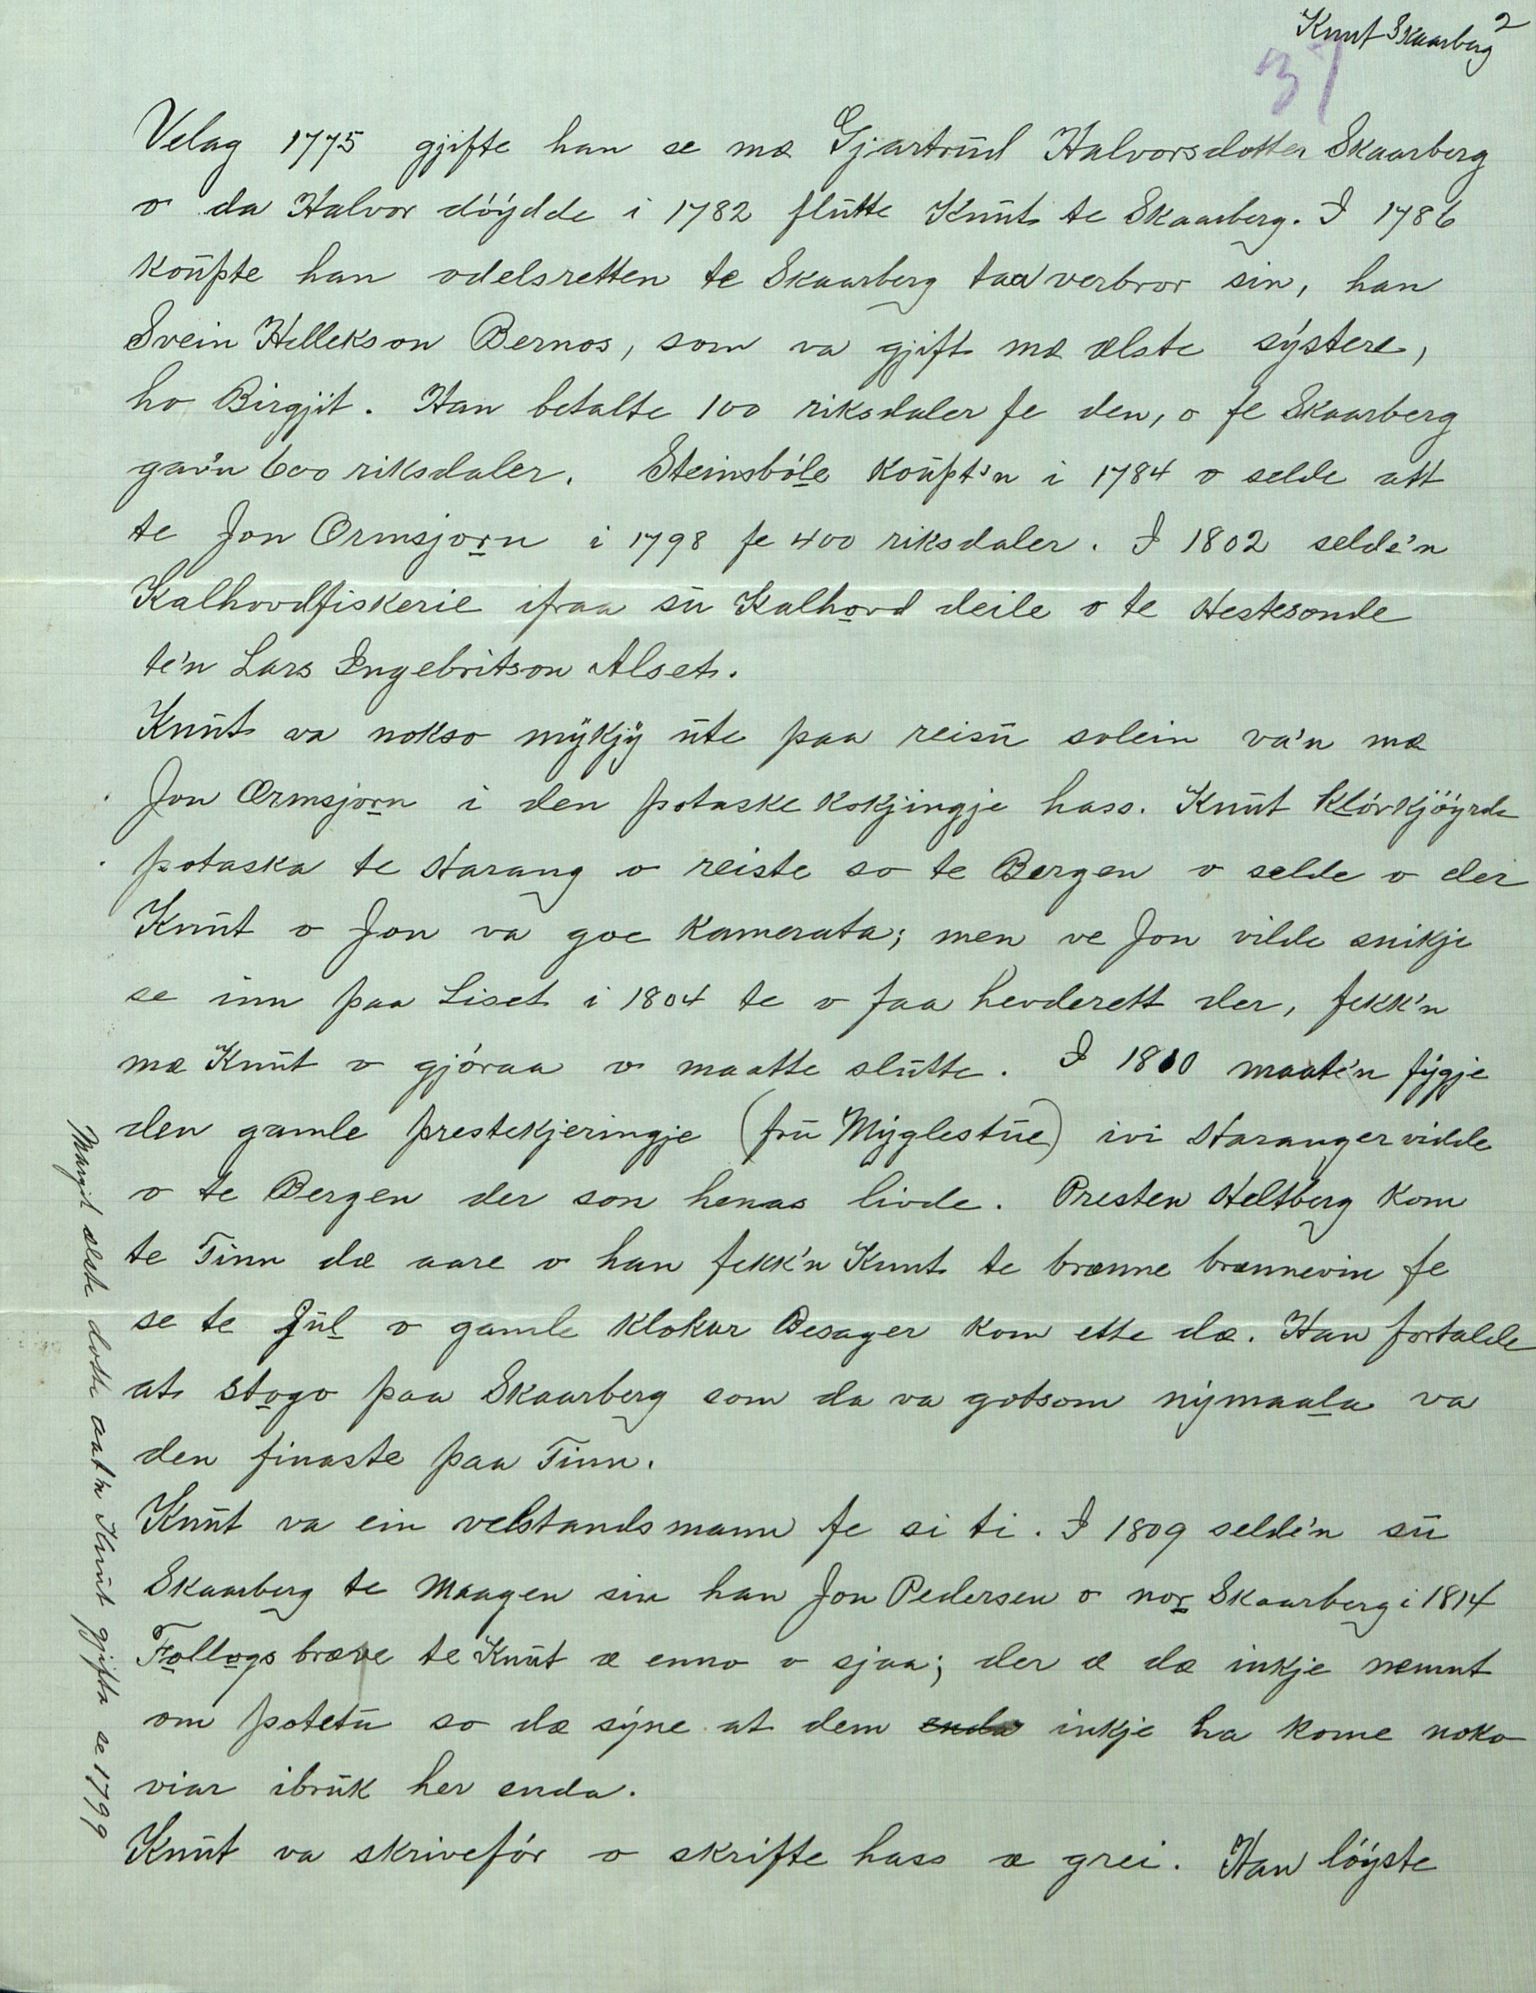 Knut Skaarberg 2
37
Velag 1775 gjifte han se mæ Gjartrud Halvorsdotter Skaarberg
o da Halvor döydde i 1782 flutte Knut te Skaarberg. I 1786
koupte han odelsretten te Skaarberg taa verbror sin, han
Svein Hellekson Bernos, som va gjift mæ ælste sýstere,
ho Birgjit. Han betalte 100 riksdaler fe den, o fe Skaarberg
gav'n 600 riksdaler. Steinsbóle koupt'n i 1784 o selde att
te Jon Ormsjorn i 1798 fe 400 riksdaler. I 1802 selde'n
Kalhovdfiskerie ifraa su Kalhovd deile o te Hestesonde
te'n Lars Ingebritson Alset.
Knut va nokso mykjy ute paa reisu solein va'n mæ
Jon Ormsjorn i den potaskekokjingje hass. Knut klórkjöyrde
potaska te Harang o reiste so te Bergen o selde o der
Knut o Jon va goe kamerata; men ve Jon vilde snikje
se inn paa Liset i 1804 te o faa hevderett der, fekk'n
mæ Knut o gjóraa o maatte slutte. I 1810 maate'n fýgje
den gamle prestekjeringje (fru Mýglestue) ivi Harangervidde
o te Bergen der son henas livde. Presten Heltberg kom
te Tinn dæ aare o han fekk'n Knut te brænne brænnevin fe
se te Jul o gamle klokar Besager kom ette dæ. Han fortalde
at stogo paa Skaarberg som da va gotsom nýmaala va
den finaste paa Tinn.
Knut va ein velstandsmann fe si ti. I 1809 selde'n su
Skaarberg te maagen sin han Jon Pedersen o nor Skaarberg i 1814
Follogsbræve te Knut æ enno o sjaa; der æ dæ inkje nemnt
om potetu so dæ sýne at dem enda inkje ha kome noko
viar ibruk her enda.
Knut va skrivefór o skrifte hass æ grei. Han löyste
Margit ælste dotte aat'n Knut gjifta se 1799